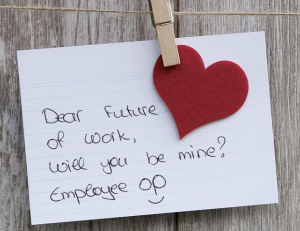 Dear Future
of work,
will you be mine?
Employee op